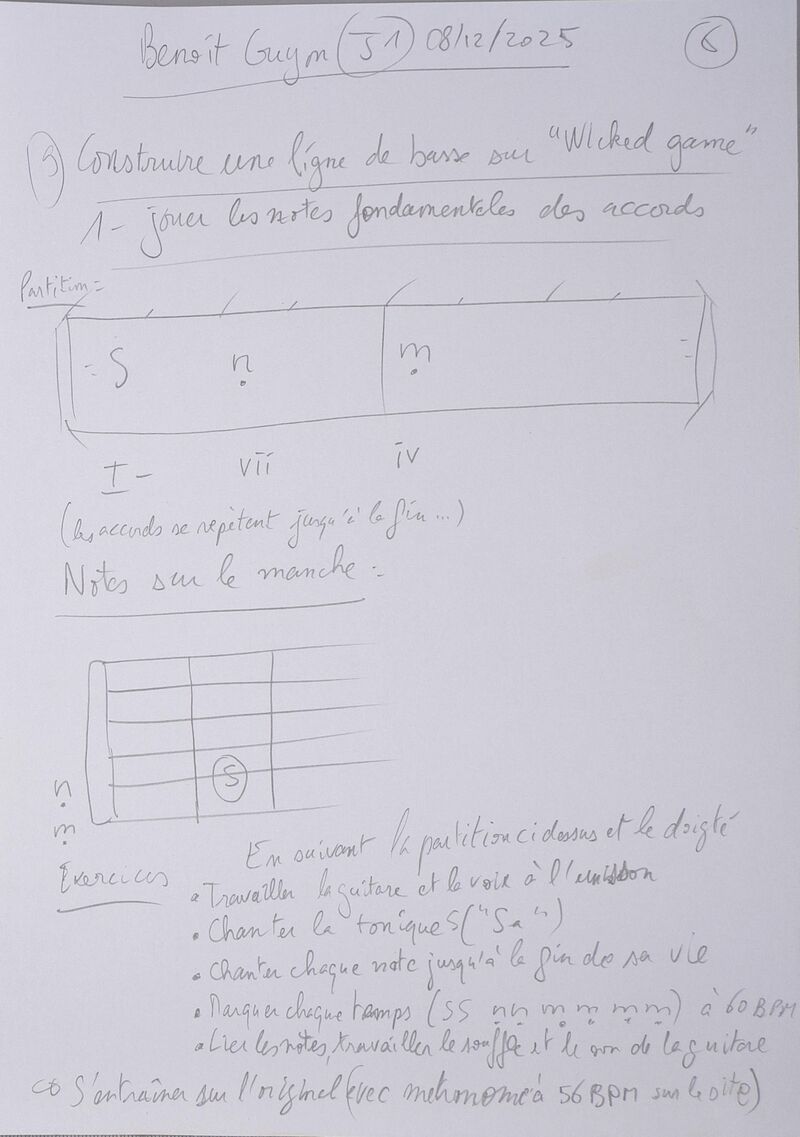 Benoît Guyon J1 08/12/2025 6
9 Construire une ligne de basse sur "Wicked game"
1- jouer les notes fondamentales des accords
Partition =
S ṇ ṃ
I - vii iv
(les accords se répètent jusqu'à la fin...)
Notes sur le manche :
S
ṇ
ṃ
En suivant la partition ci dessus et le doigté
Exercices
• Travailler la guitare et la voix à l'unisson
• Chanter la tonique S ("Sa")
• Chanter chaque note jusqu'à la fin de sa vie
• Marquer chaque temps (SS ṇṇ ṃ ṃ ṃ ṃ) à 60 BPM
• Lier les notes, travailler le souffle et le son de la guitare
S'entraîner sur l'original (avec métronome à 56 BPM sur le site)